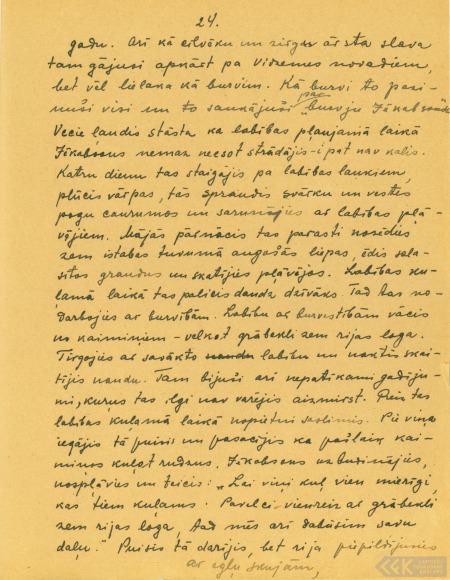 24.
gadu. Arī kā cilvēku un zirgu ārsta slava
tam gājusi apkārt pa Vidzemes novadiem,
bet vēl lielāka kā burvim. Kā burvi to pazi-
nuši visi un to saukājuši par "burvju Jēkabsonu".
Vecie ļaudis stāsta ka labības pļaujamā laikā
Jēkabsons nemaz neesot strādājis - i pat nav kalis.
Katru dienu tas staigājis pa labības laukiem,
plūcis vārpas, tās spraudis svārku un vestes
pogu caurumos un sarunājies ar labības pļā-
vējiem. Mājās pārnācis tas parasti nosēdies
zem istabas tuvumā augošās liepas, ēdis sala-
sītos graudus un skatījies pļāvējos. Labības ku-
ļamā laikā tas palicis daudz dzīvāks. Tad tas no-
darbojies ar burvībām. Labību ar burvestībām vācis
no kaimiņiem - velkot grābekli zem rijas loga.
Tirgojies ar savākto naudu labību un naktīs skai-
tījis naudu. Tam bijuši arī nepatīkami gadīju-
mi, kuŗus tas ilgi nav varējis aizmirst. Reiz tas
labības kuļamā laikā nopietni saslimis. Pie viņa
iegājis tā puisis un pasacījis ka pašlaik kai-
miņos kuļot rudzus. Jēkabsons uzbudinājies,
nospļāvies un teicis: "Lai viņi kuļ vien mierīgi,
kas tiem kuļams. Pavelci vienreiz ar grābekli
zem rijas loga, tad mēs arī dabūsim savu
daļu." Puisis tā darījis, bet rija piepildījusies
ar egļu skujām,